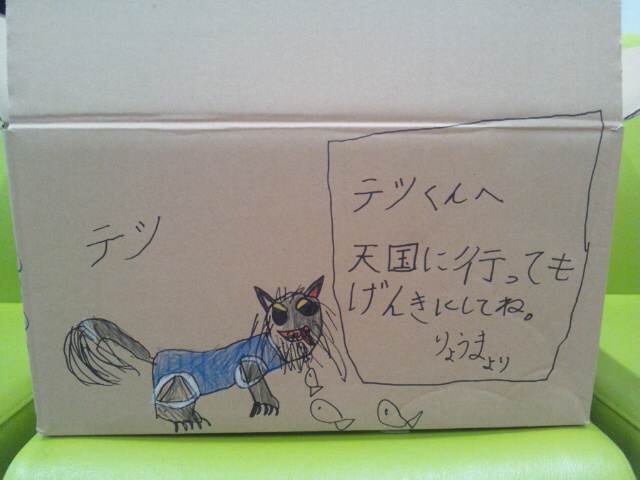 テツ
テツくんへ
天国に行っても
げんきにしてね。
りょうまより